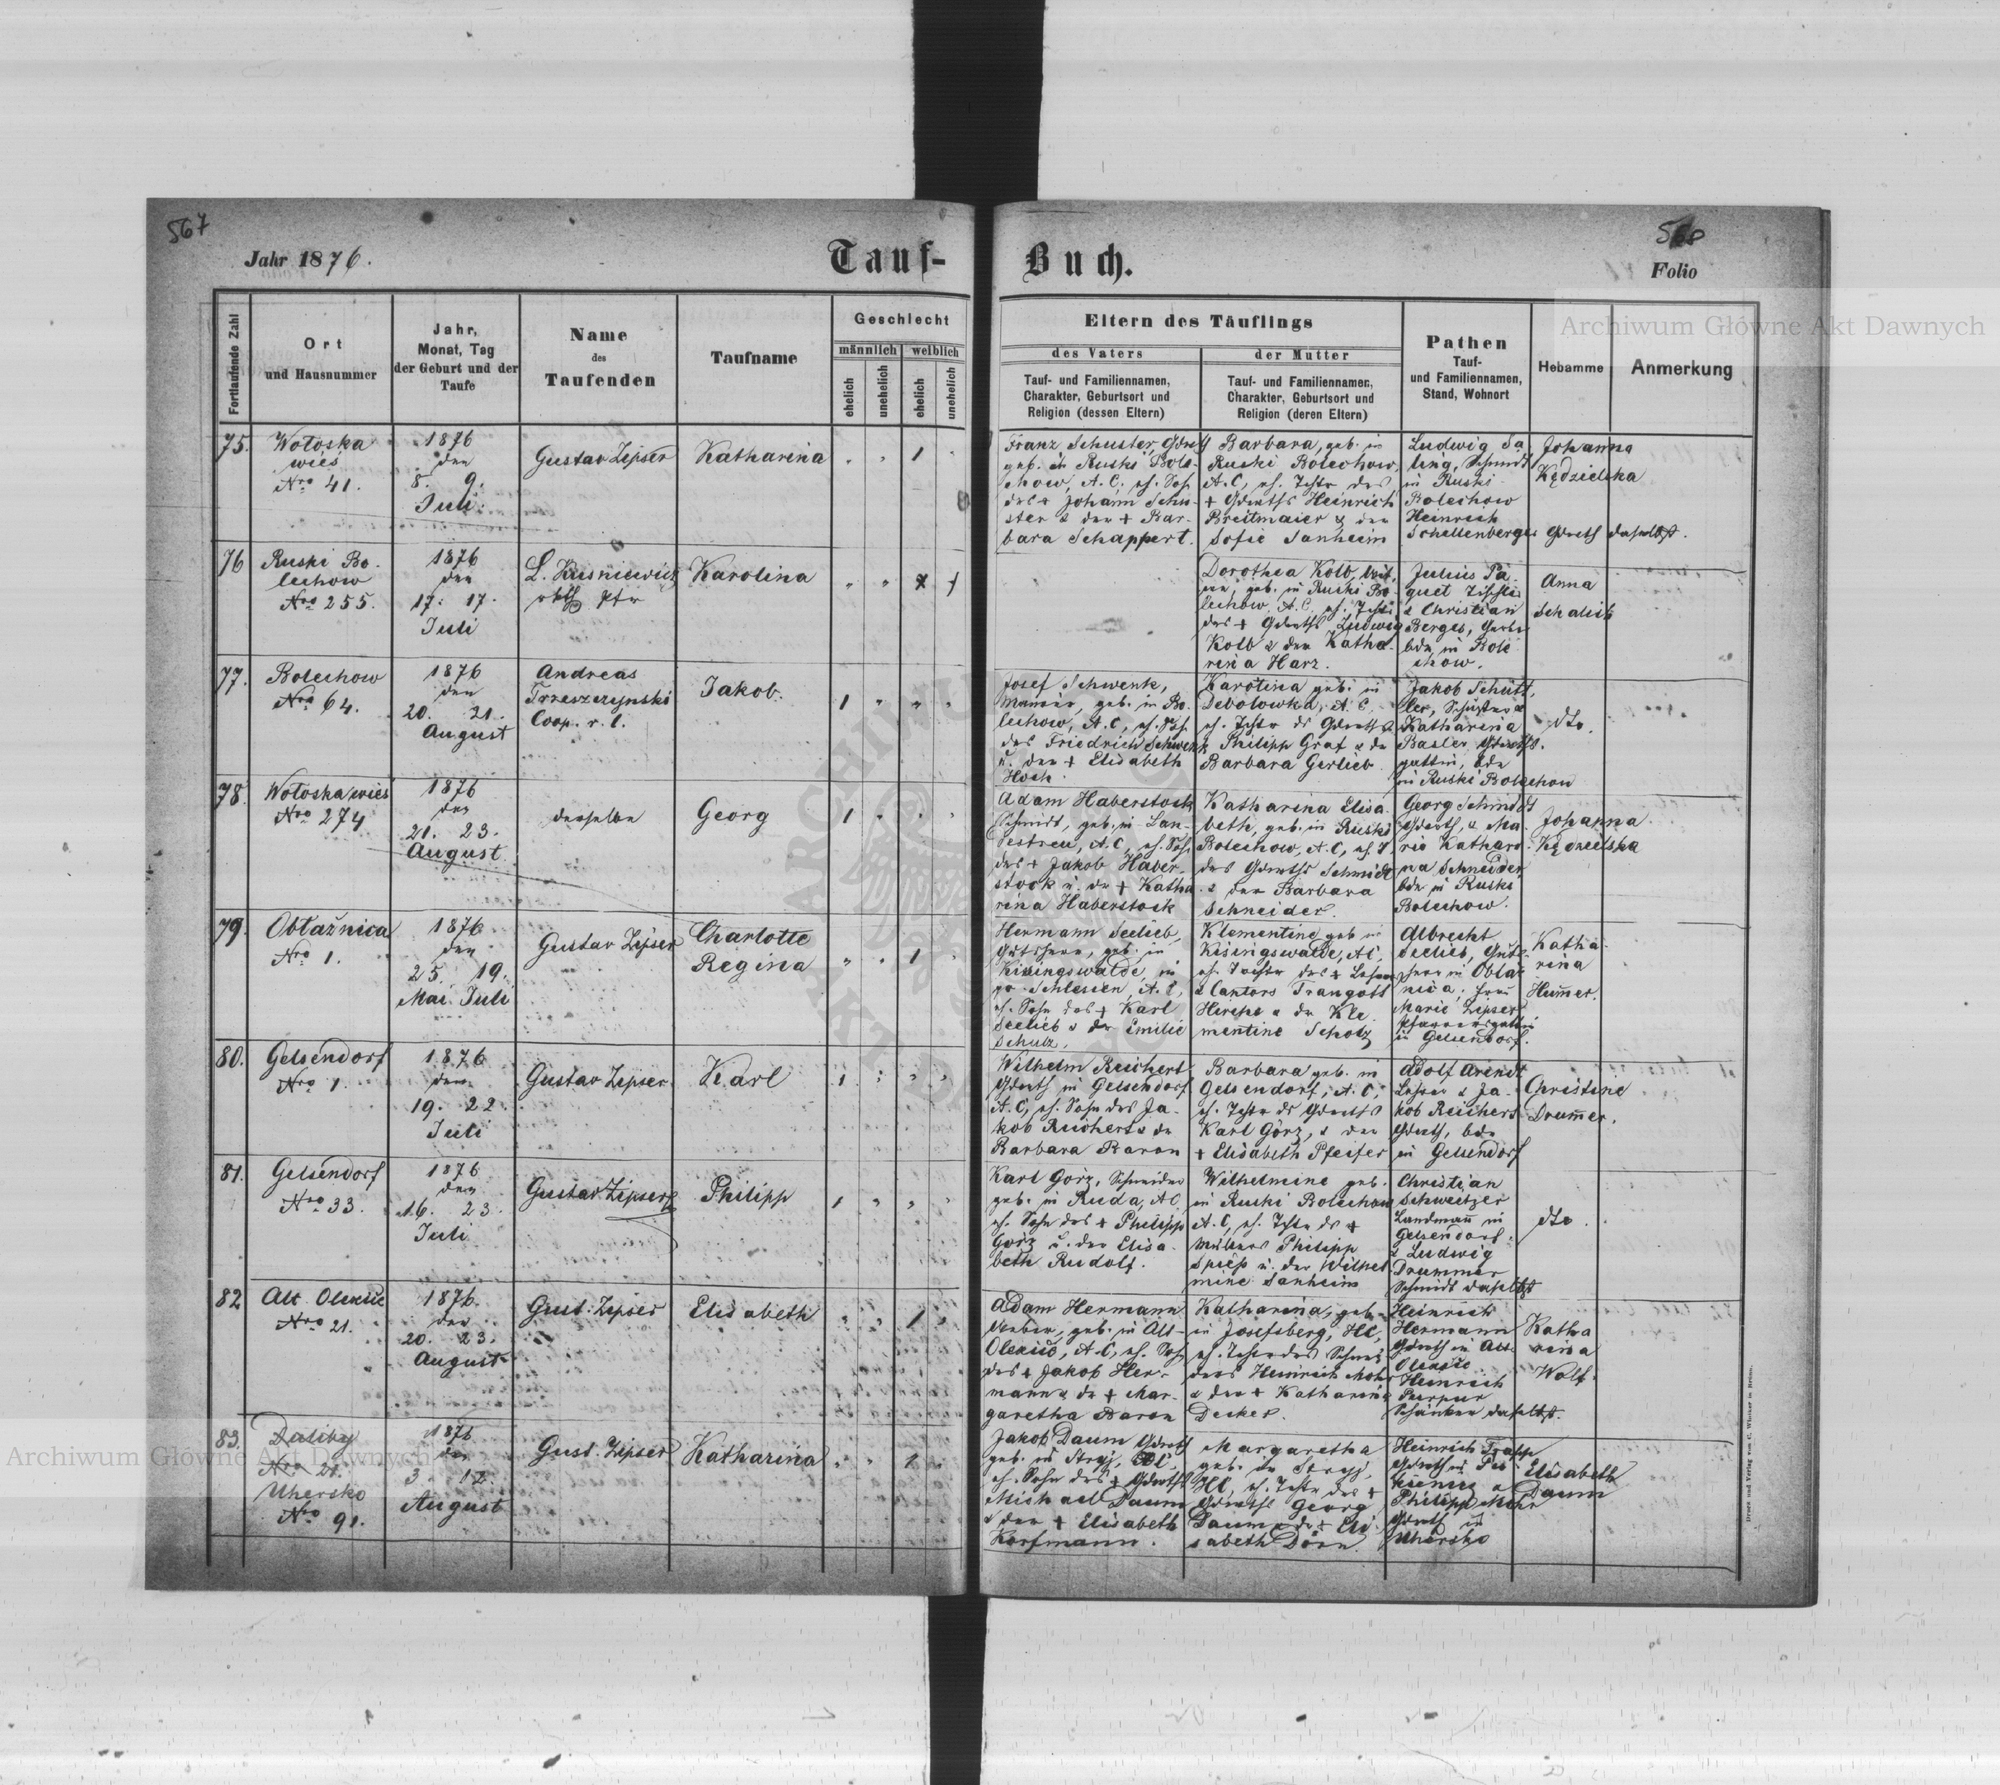 567
568
Jahr 1876.
Tauf-
Buch.
Folio
Archiwum Główne Akt Dawnych
Fortlaufende Zahl
Ort
und Hausnummer
Jahr,
Monat, Tag
der Geburt und der
Taufe
Name
des
Taufenden
Taufname
Geschlecht
männlich
weiblich
ehelich
unehelich
ehelich
unehelich
Eltern des Täuflings
des Vaters
Tauf- und Familiennamen,
Charakter, Geburtsort und
Religion (dessen Eltern)
der Mutter
Tauf- und Familiennamen,
Charakter, Geburtsort und
Religion (deren Eltern)
Pathen
Tauf-
und Familiennamen,
Stand, Wohnort
Hebamme
Anmerkung
75.
Wołoska
wieś
Nro 41.
1876
den
8. 9.
Juli.
Gustav Zipser
Katharina
1
Franz Schuster, Gdrth
geb. in Ruski Bole-
chow, A.C. eh. Sohn
des + Johann Schu-
ster & der + Bar-
bara Schappert.
Barbara, geb. in
Ruski Bolechow,
A.C, eh. Tchtr des
+ Gdrths Heinrich
Breitmaier & der
Sofie Sanheim
Ludwig Sa
ling, Schmidt
in Ruski
Bolechow
Heinrich
Schellenberger Gdrth daselbst.
Johanna
Kędzielska
76
Ruski Bo-
lechow
Nro 255.
1876
den
17. 17.
Juli
L. Kusniewicz
Karolina
Dorothea Kolb,
geb. in Ruski Bo-
lechow, A.C, eh. Tchtr
des + Gdrths Ludwig
Kolb & der Katha-
rina Harz.
Julius Pa-
quet Tischler
& Christian
Berges,
bde in Bole
chow.
Anna
Schalis
77.
Bolechow
Nro 64.
1876
den
20. 21.
August
Andreas
Trzeszczynski
Coop. r. l.
Jakob.
1
Josef Schwenk,
Maurer, geb. in Bo-
lechow, A.C, eh. Sohn
des Friedrich Schwenk
u. der + Elisabeth
Hoch.
Karolina geb. in
Debolowka, A.C.
eh. Tchtr ds Gdrths
Philipp Graf & der
Barbara Gerlieb
Jakob Schütt-
ler, Schuster &
Katharina
Basler, Gdrths-
gattin, bde
in Ruski Bolechow
dto.
78.
Wołoska wieś
Nro 274
1876
den
21. 23.
August
derselbe
Georg
1
Adam Haberstock
Schmidt, geb. in Lan-
destreu, A.C, eh. Sohn
des + Jakob Haber-
stock u. der + Katha-
rina Haberstock
Katharina Elisa-
beth, geb. in Ruski
Bolechow, A.C, eh. T.
des Gdrths Schmidt
& der Barbara
Schneider.
Georg Schmidt
Gdrth, & Ma-
ria Kathari-
na Schneider
bde in Ruski
Bolechow.
Johanna
Kędzielska
79.
Obłażnica
Nro 1.
1876
den
25. 19.
Mai. Juli
Gustav Zipser
Charlotte
Regina
1
Hermann Seelieb,
Gutsherr, geb. in
Kiesingswalde, in
pr. Schlesien, A.C,
eh. Sohn des + Karl
Seelieb & der Emilie
Schulz.
Klementine geb in
Kisingswalde, AC,
eh. Tochter des + Lehrers
& Cantors Traugott
Hirche & der Kle-
mentine Scholz
Albrecht
Seelieb, Guts-
herr in Obłaz-
nica; Frau
Marie Zipser
Pfarrersgattin
in Gelsendorf.
Katha-
rina
Hummer.
80.
Gelsendorf
Nro 1.
1876
den
19. 22.
Juli
Gustav Zipser.
Karl
1
Wilhelm Reichert
Gdrth in Gelsendorf
A.C, eh. Sohn des Ja-
kob Reichert & der
Barbara Baron
Barbara geb. in
Gelsendorf, A.C,
eh. Tchtr ds Gdrths
Karl Görz, & der
+ Elisabeth Pfeifer
Adolf Arendt
Lehrer & Ja-
kob Reichert
Gdrth, bde
in Gelsendorf
Christine
Drummer.
81.
Gelsendorf
Nro 33.
1876
den
16. 23.
Juli
Gustav Zipser
Philipp
1
Karl Görz, Schneider
geb. in Ruda, AC
eh. Sohn des + Philipp
Görz u. der Elisa-
beth Rudolf.
Wilhelmine geb.
in Ruski Bolechow
A.C, eh. Tchtr ds +
Müllers Philipp
Spieß u. der Wilhel
mine Sanheim
Christian
Schweitzer
Landmann in
Gelsendorf.
& Ludwig
Drummer
Schmidt daselbst
dto.
82
Alt Oleksic
Nro 21.
1876.
den
20. 23.
August
Gust. Zipser
Elisabeth
1
Adam Hermann
Weber, geb. in Alt-
Oleksic, A.C, eh. Sohn
des + Jakob Her-
mann & der + Mar-
garetha Baron
Katharina, geb.
in Josefsberg, HC,
eh. Tchtr des Schnei-
ders Heinrich Mohr
& der + Katharina
Decker.
Heinrich
Hermann
Gdrth in Alt
Oleksic
Heinrich
Purpur
Schänker daselbst.
Katha
rina
Wolf.
83.
Daliby
Nro 21.
Uhersko
Nro 91.
1876
den
3. 12.
August
Gust. Zipser
Katharina
1
Jakob Daum Gdrth
geb. in Stryj, HC,
eh. Sohn des + Gdrths
Michael Daum
& der + Elisabeth
Korfmann.
Margaretha
geb. in Stryj,
HC, eh. Tchtr des +
Gdrths Georg
Daum & der + Eli-
sabeth Dörn.
Heinrich Trapp
Gdrth in
&
Philipp Mohr
Gdrth in
Uhersko
Elisabeth
Daum
Druck und Verlag von C. Winiker in Brünn.
Archiwum Główne Akt Dawnych